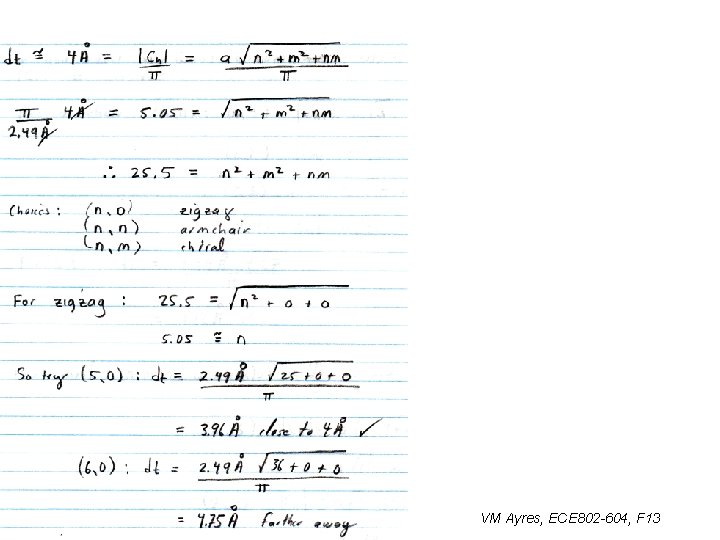 dt ≅ 4Å = |Ch|/π = a√(n²+m²+nm)/π
π/2.49Å 4Å = 5.05 = √(n²+m²+nm)
∴ 25.5 = n²+m²+nm
Choices: (n,0) zigzag
(n,n) armchair
(n,m) chiral
For zigzag: 25.5 = √(n²+0+0)
5.05 ≅ n
So try (5,0): dt = 2.49Å √(25+0+0)/π
= 3.96Å close to 4Å ✓
(6,0): dt = 2.49Å √(36+0+0)/π
= 4.75Å farther away
VM Ayres, ECE802-604, F13